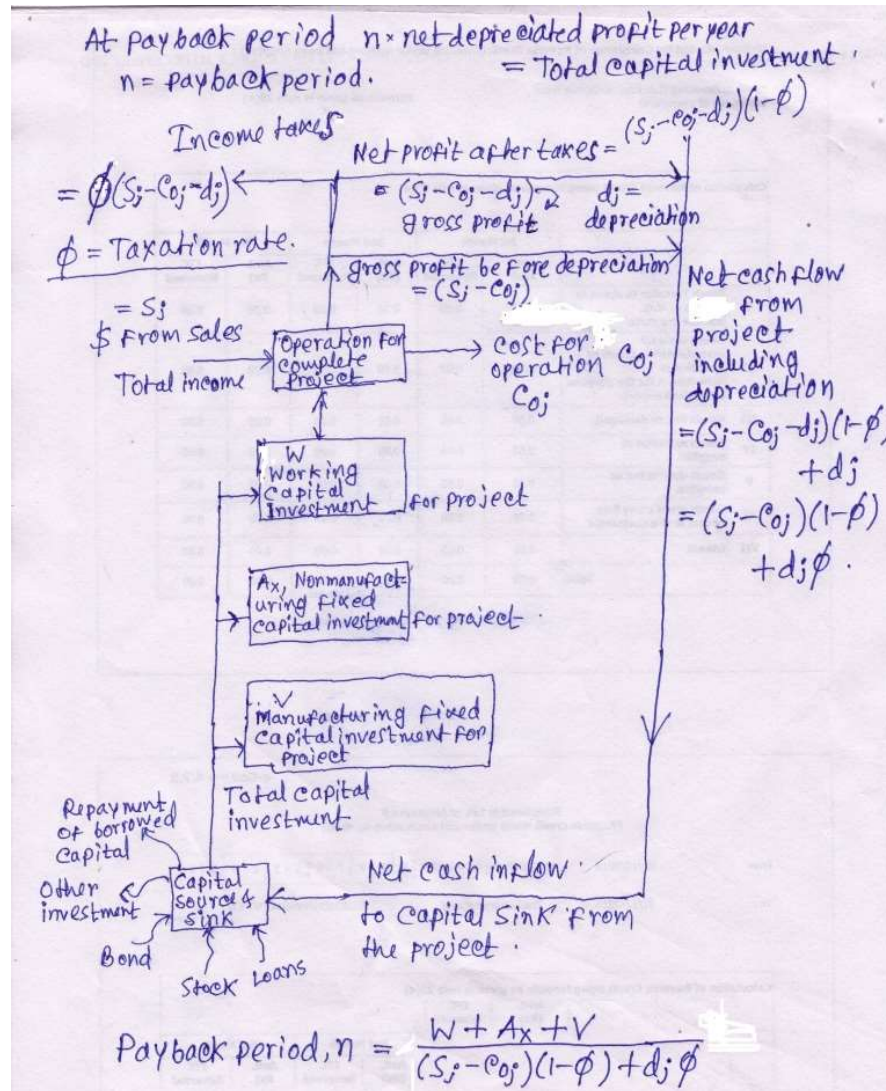 At payback period n × net depreciated profit per year
n = payback period. = Total capital investment.
Income taxes
= ϕ(Sj - Coj - dj)
ϕ = Taxation rate.
Net profit after taxes = (Sj - Coj - dj)(1-ϕ)
= (Sj - Coj - dj)
gross profit
dj =
depreciation
gross profit before depreciation
= (Sj - Coj)
= Sj
$ From sales
Total income
Operation for
complete
Project
cost for
operation Coj
Coj
Net cash flow
from
project
including
depreciation
= (Sj - Coj - dj)(1-ϕ)
+ dj
= (Sj - Coj)(1-ϕ)
+ djϕ.
W
Working
Capital
Investment
for project
Ax, Nonmanufact-
uring Fixed
capital investment
for project.
V
Manufacturing Fixed
Capital investment for
Project
Total capital
investment
Repayment
of borrowed
Capital
Other
investment
Bond
Stock
Loans
Capital
source &
sink
Net cash inflow
to Capital Sink from
the project.
Payback period, n = W + Ax + V
(Sj - Coj)(1-ϕ) + djϕ